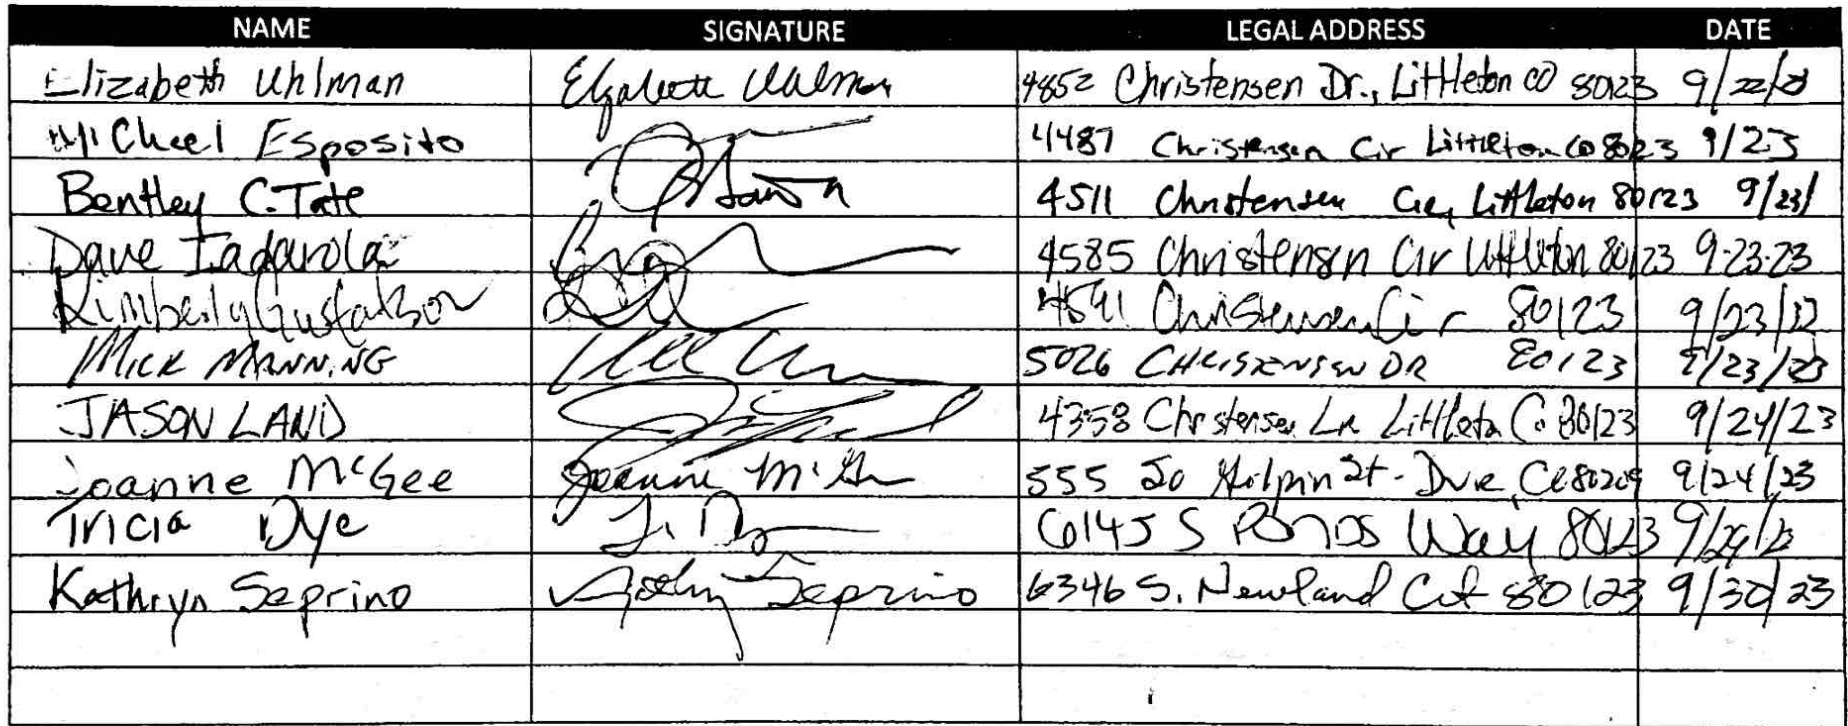 NAME SIGNATURE LEGAL ADDRESS DATE
Elizabeth Uhlman Elizabeth Uhlman 4852 Christensen Dr., Littleton CO 80123 9/22/23
Michael Esposito 4487 Christensen Cir Littleton CO 80123 9/23
Bentley C. Tate 4511 Christensen Cir, Littleton 80123 9/23/
Dave Iadarola 4585 Christensen Cir Littleton 80123 9-23-23
Kimberly Gustafson 4591 Christensen Cir 80123 9/23/23
MICK MANNING 5026 CHRISTENSEN DR 80123 9/23/23
JASON LAND 4358 Christensen Ln Littleton Co 80123 9/24/23
Joanne McGee Joanne McGee 555 So Gilpin St - Dvr, CO 80209 9/24/23
Tricia Dye T. Dye 6145 S Ponds Way 80123
Kathryn Seprino Kathryn Seprino 6346 S. Newland Crt 80123 9/30/23